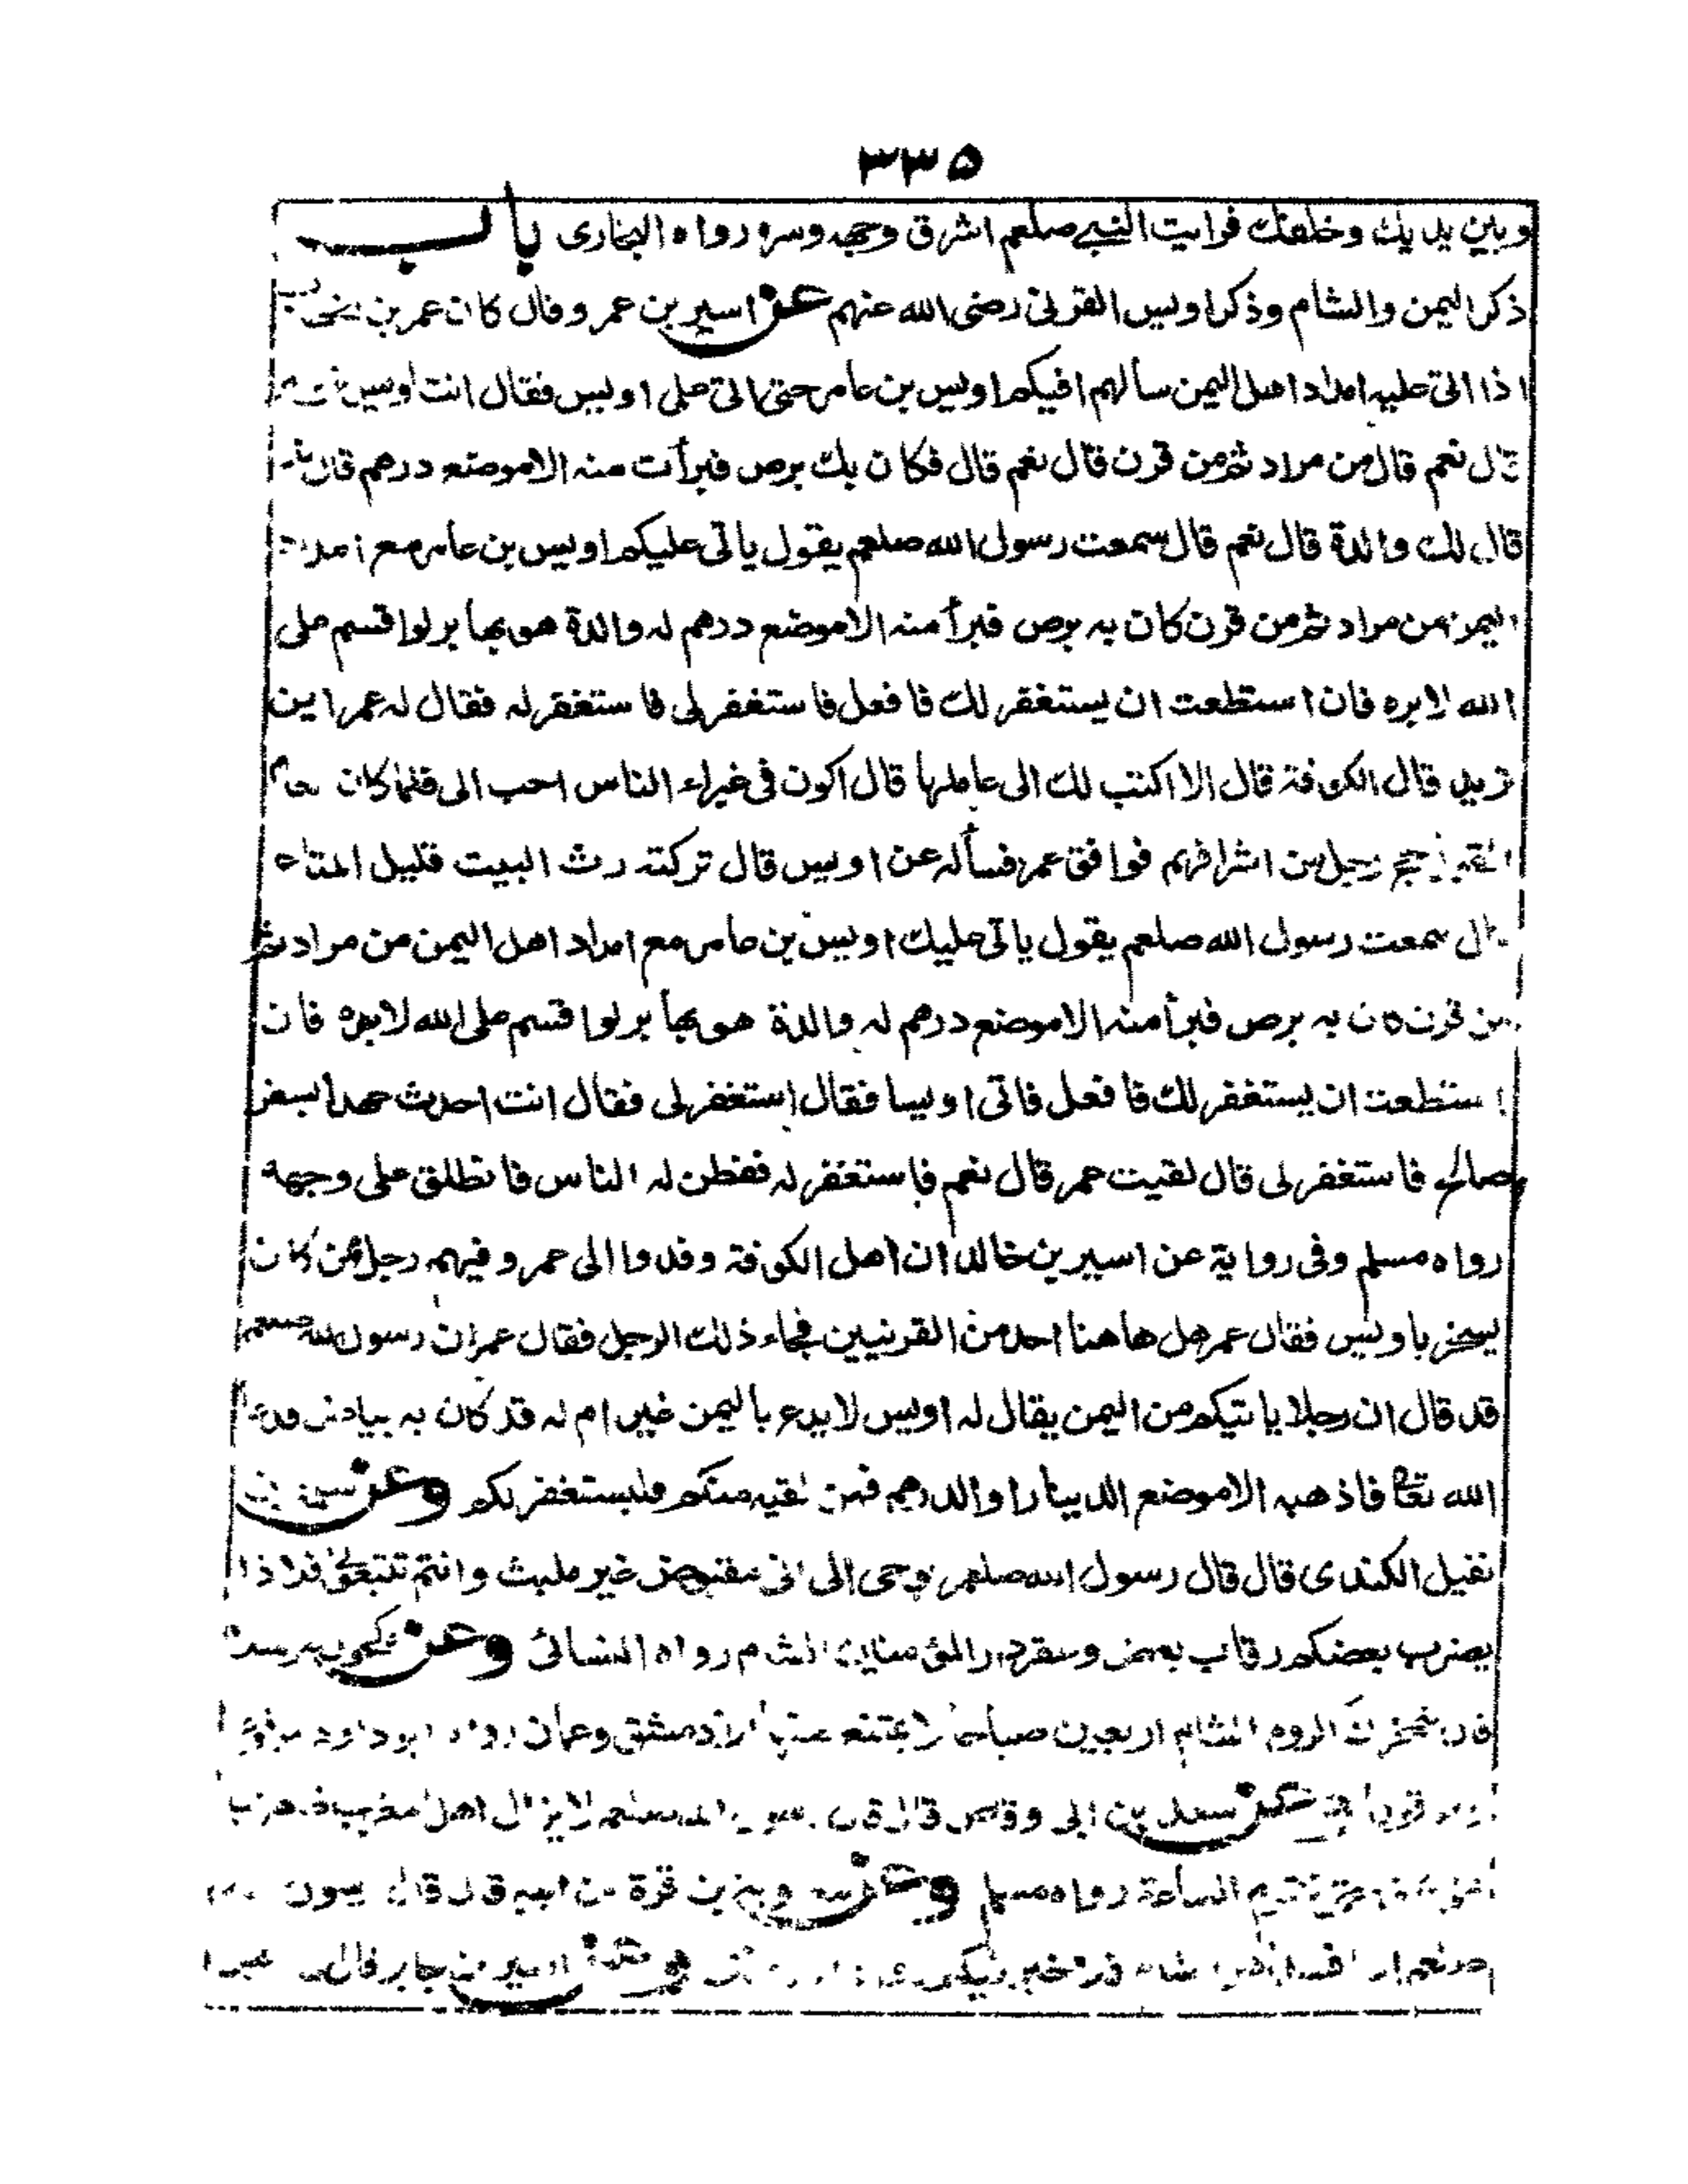 ٣٣٥
وبين يديك وخلفك فرايت النبي صلعم اشرق وجهه وسره رواه البخاري باب
ذكر اليمن والشام وذكر اويس القرني رضى الله عنهم عن اسير بن عمر وقال كان عمر بن
اذا اتى عليه امداد اهل اليمن سألهم افيكم اويس بن عامر حتى اتى على اويس فقال انت اويس
قال نعم قال من مراد ثم من قرن قال نعم قال فكان بك برص فبرأت منه الا موضع درهم قال
قال لك والدة قال نعم قال سمعت رسول الله صلعم يقول ياتى عليكم اويس بن عامر مع امداد
اليمن من مراد ثم من قرن كان به برص فبرأ منه الا موضع درهم له والدة هو بها بر لو اقسم على
الله لابره فان استطعت ان يستغفر لك فافعل فاستغفر لى فاستغفر له فقال له عمر اين
تريد قال الكوفة قال الا اكتب لك الى عاملها قال اكون فى غبراء الناس احب الى فلما كان
حج رجل من اشرافهم فوافق عمر فسأله عن اويس قال تركته رث البيت قليل المتاع
قال سمعت رسول الله صلعم يقول ياتى عليك اويس بن عامر مع امداد اهل اليمن من مراد ثم
من قرن كان به برص فبرأ منه الا موضع درهم له والدة هو بها بر لو اقسم على الله لابره فان
استطعت ان يستغفر لك فافعل فاتى اويسا فقال استغفر لى فقال انت احدث عهدا بسفر
صالح فاستغفر لى قال لقيت عمر قال نعم فاستغفر له ففطن له الناس فانطلق على وجهه
رواه مسلم وفى رواية عن اسير بن خالد ان اهل الكوفة وفدوا الى عمر وفيهم رجل ممن كان
يسخر باويس فقال عمر هل هاهنا احد من القرنيين فجاء ذلك الرجل فقال عمر ان رسول الله صلعم
قد قال ان رجلا ياتيكم من اليمن يقال له اويس لا يدع باليمن غير ام له قد كان به بياض فدعا
الله تعا فاذهبه الا موضع الدينار او الدرهم فمن لقيه منكم فليستغفر لكم وعن
نفيل الكندى قال قال رسول الله صلعم يوحى الى انى مقبوض غير ملبث وانتم فلا ذا
يضرب بعضكم رقاب بعض وعقر دار المؤمنين الشام رواه النسائى وعن مكحول
الروم الشام اربعين صباحا لا يمتنع منها الا دمشق وعمان رواه ابو داود
عن سعد بن ابى وقاص قال قال لا يزال اهل
الساعة رواه مسلم وعن قرة عن ابيه قال قال
صلعم اذا فسد اهل الشام فلا خير فيكم بن جابر قال